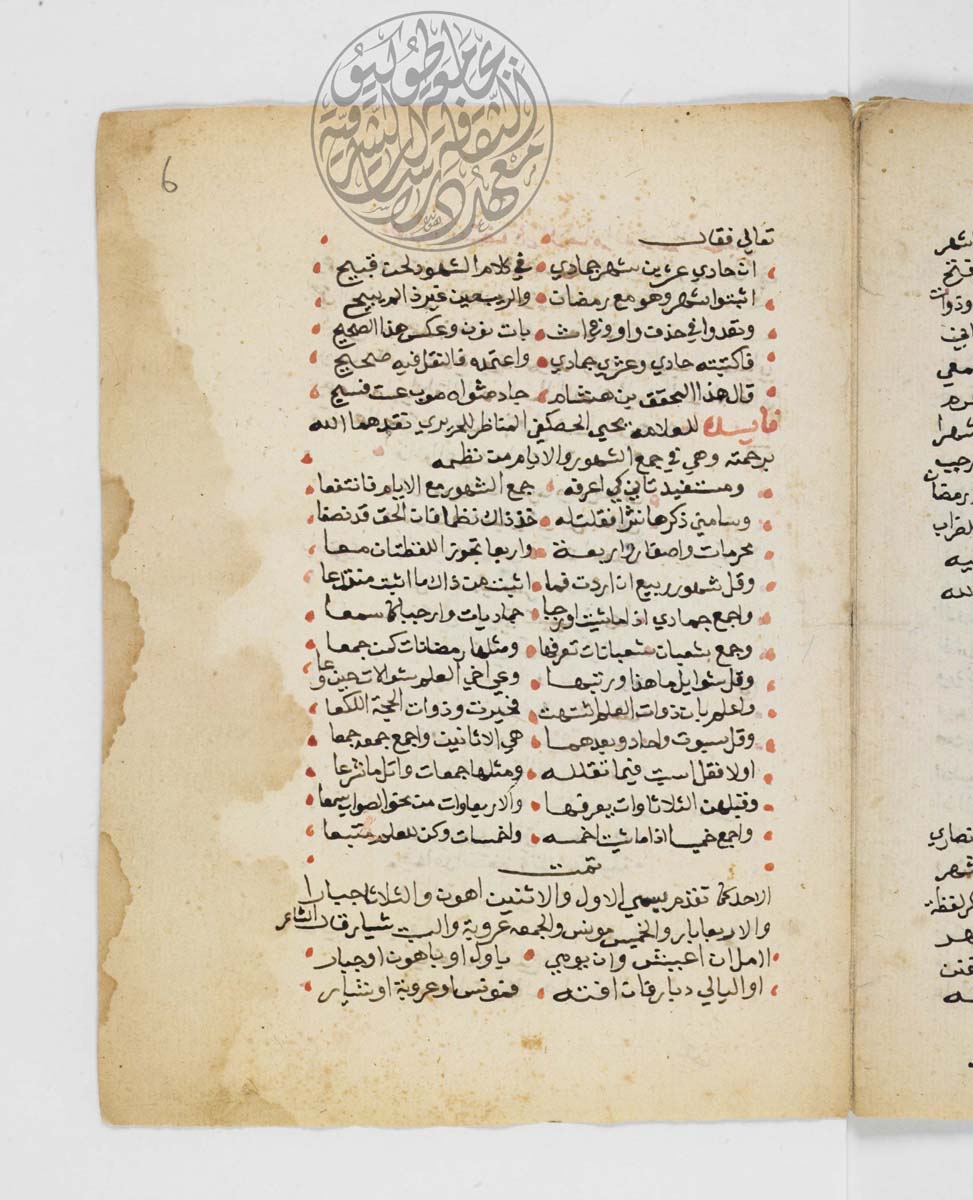 جامعة طوكيو
معهد الثقافة والدراسات الشرقية
6
تعالي فقال
ان حادي عزين شهر جمادي في كلام الشهود لحن قبيح
اثبتوا شهر وهو مع رمضان والربيعين غير ذا لم يبيح
وتعدوا في حذف واو واثبات نون وعكس هذا الصحيح
فاكتبنه حادي وعزي جمادي واعتمله فالنقل فيه صحيح
قال هذا المحقق بن هشام جاد مثواه صوب عن فسيح
فايده للعلامه يحيي الحصكفي المناظر للحريري تغدهما الله
برحمته وهي في جمع الشهور والايام من نظمه
ومستفيد تاني كي اعرفه جمع الشهور مع الايام فانتفعا
وسامني ذكرها نثرا فقلت له خذ ذاك نظما فان الحق قد نصعا
محرمات واصفار واربعة واربعا تجوز اللفظتان معا
وقل شهور ربيع ان اردت فما اثبت من ذاك ما اثبت متقدعا
واجمع جمادي اذا ما شيت او رجبا جماديات وارحبا كا سمعا
وجمع شعبان شعبانات تعرفها ومثلها رمضانات كمن جمعا
وقل شوايل ما هذا ورتبها وعي اخي العلم شوالات حين وعا
واعلم بان ذوات العلم اشتهت فخيرت وذوات الحجة اللكعا
وقل سبوت واحاد وبعدهما هي الاثانين واجمع جمعه جمعا
اولا فقل اسبت فيما تقلله ومثلها جمعات واتل ما شرعا
وقبلهن الثلاثاوات يعرفها والاربعاوات من نحو الصواب سعا
واجمع خميسا اذا ما شيت اخمسه واخمسات وكن للعلم متبعا
تمت
الاحد كما تقدم يسمي الاول والاثنين اهون والثلاثا جبارا
والاربعا بار والخميس مونس والجمعه عروبة والسبت شيار قال الشاعر
الاملان اعيش وان يومي باول او باهون او جبار
او اليالي دبار فان افته فمونس او عروبة او شيار